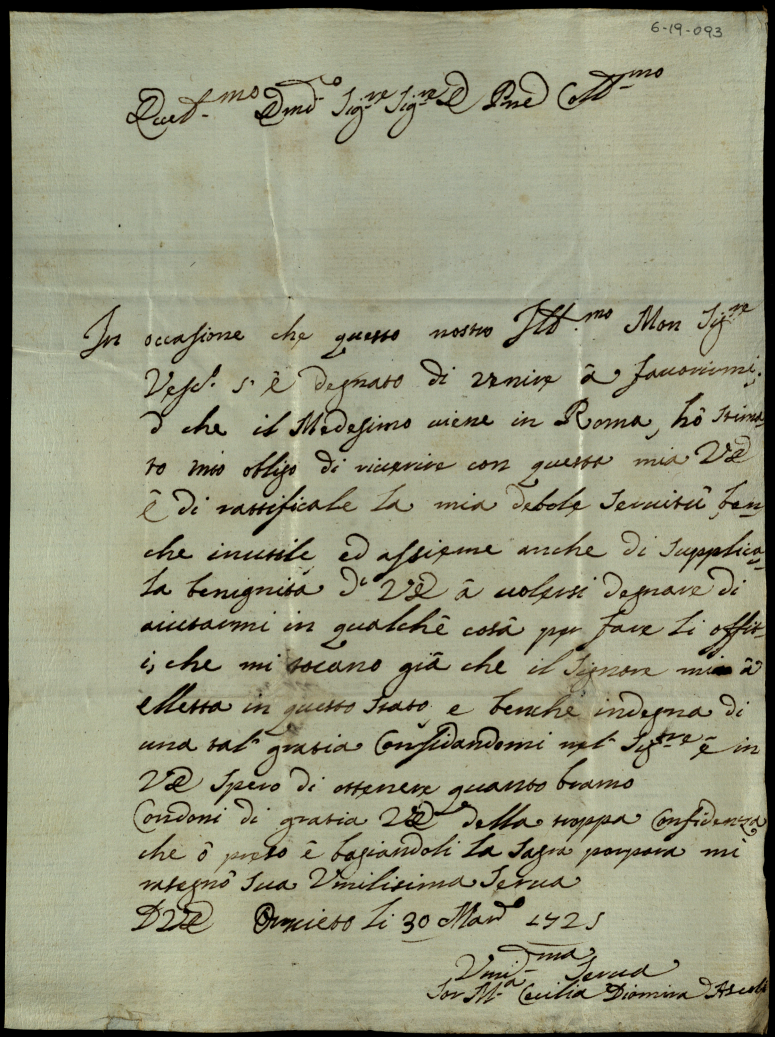 6-19-093
Em.mo Sig.re Sig.re P.ne Coll.mo
In occasione che questo nostro Ill.mo Mon Sig.re
Vesc.o s' è degnato di venire â favorirmi;
d che il Medesimo viene in Roma, hô stima-
to mio obligo di riverire con questa mia VE
ê di rattificale la mia debole servitû ben-
che inutile ed assieme anche di supplica-
la benignita d' VE â volersi degnare di
aiutarmi in qualchê cosâ per fare li offit-
i, che mi tocano giâ che il Signore mi â
elletta in questo stato e benche indegna di
una tal gratia Confidandomi nel Sig.re ê in
VE spero di ottenere quanto bramo
Condoni di gratia VE della troppa Confidenza
che ô preso ê bagiandoli la sagra porpora mi
rasegnô Sua Vmilisima Serva
D VE Orvieto li 30 Mar.o 1725
Vmi.ma Serva
Sor M.a Cecilia Diomira d'Ascoli